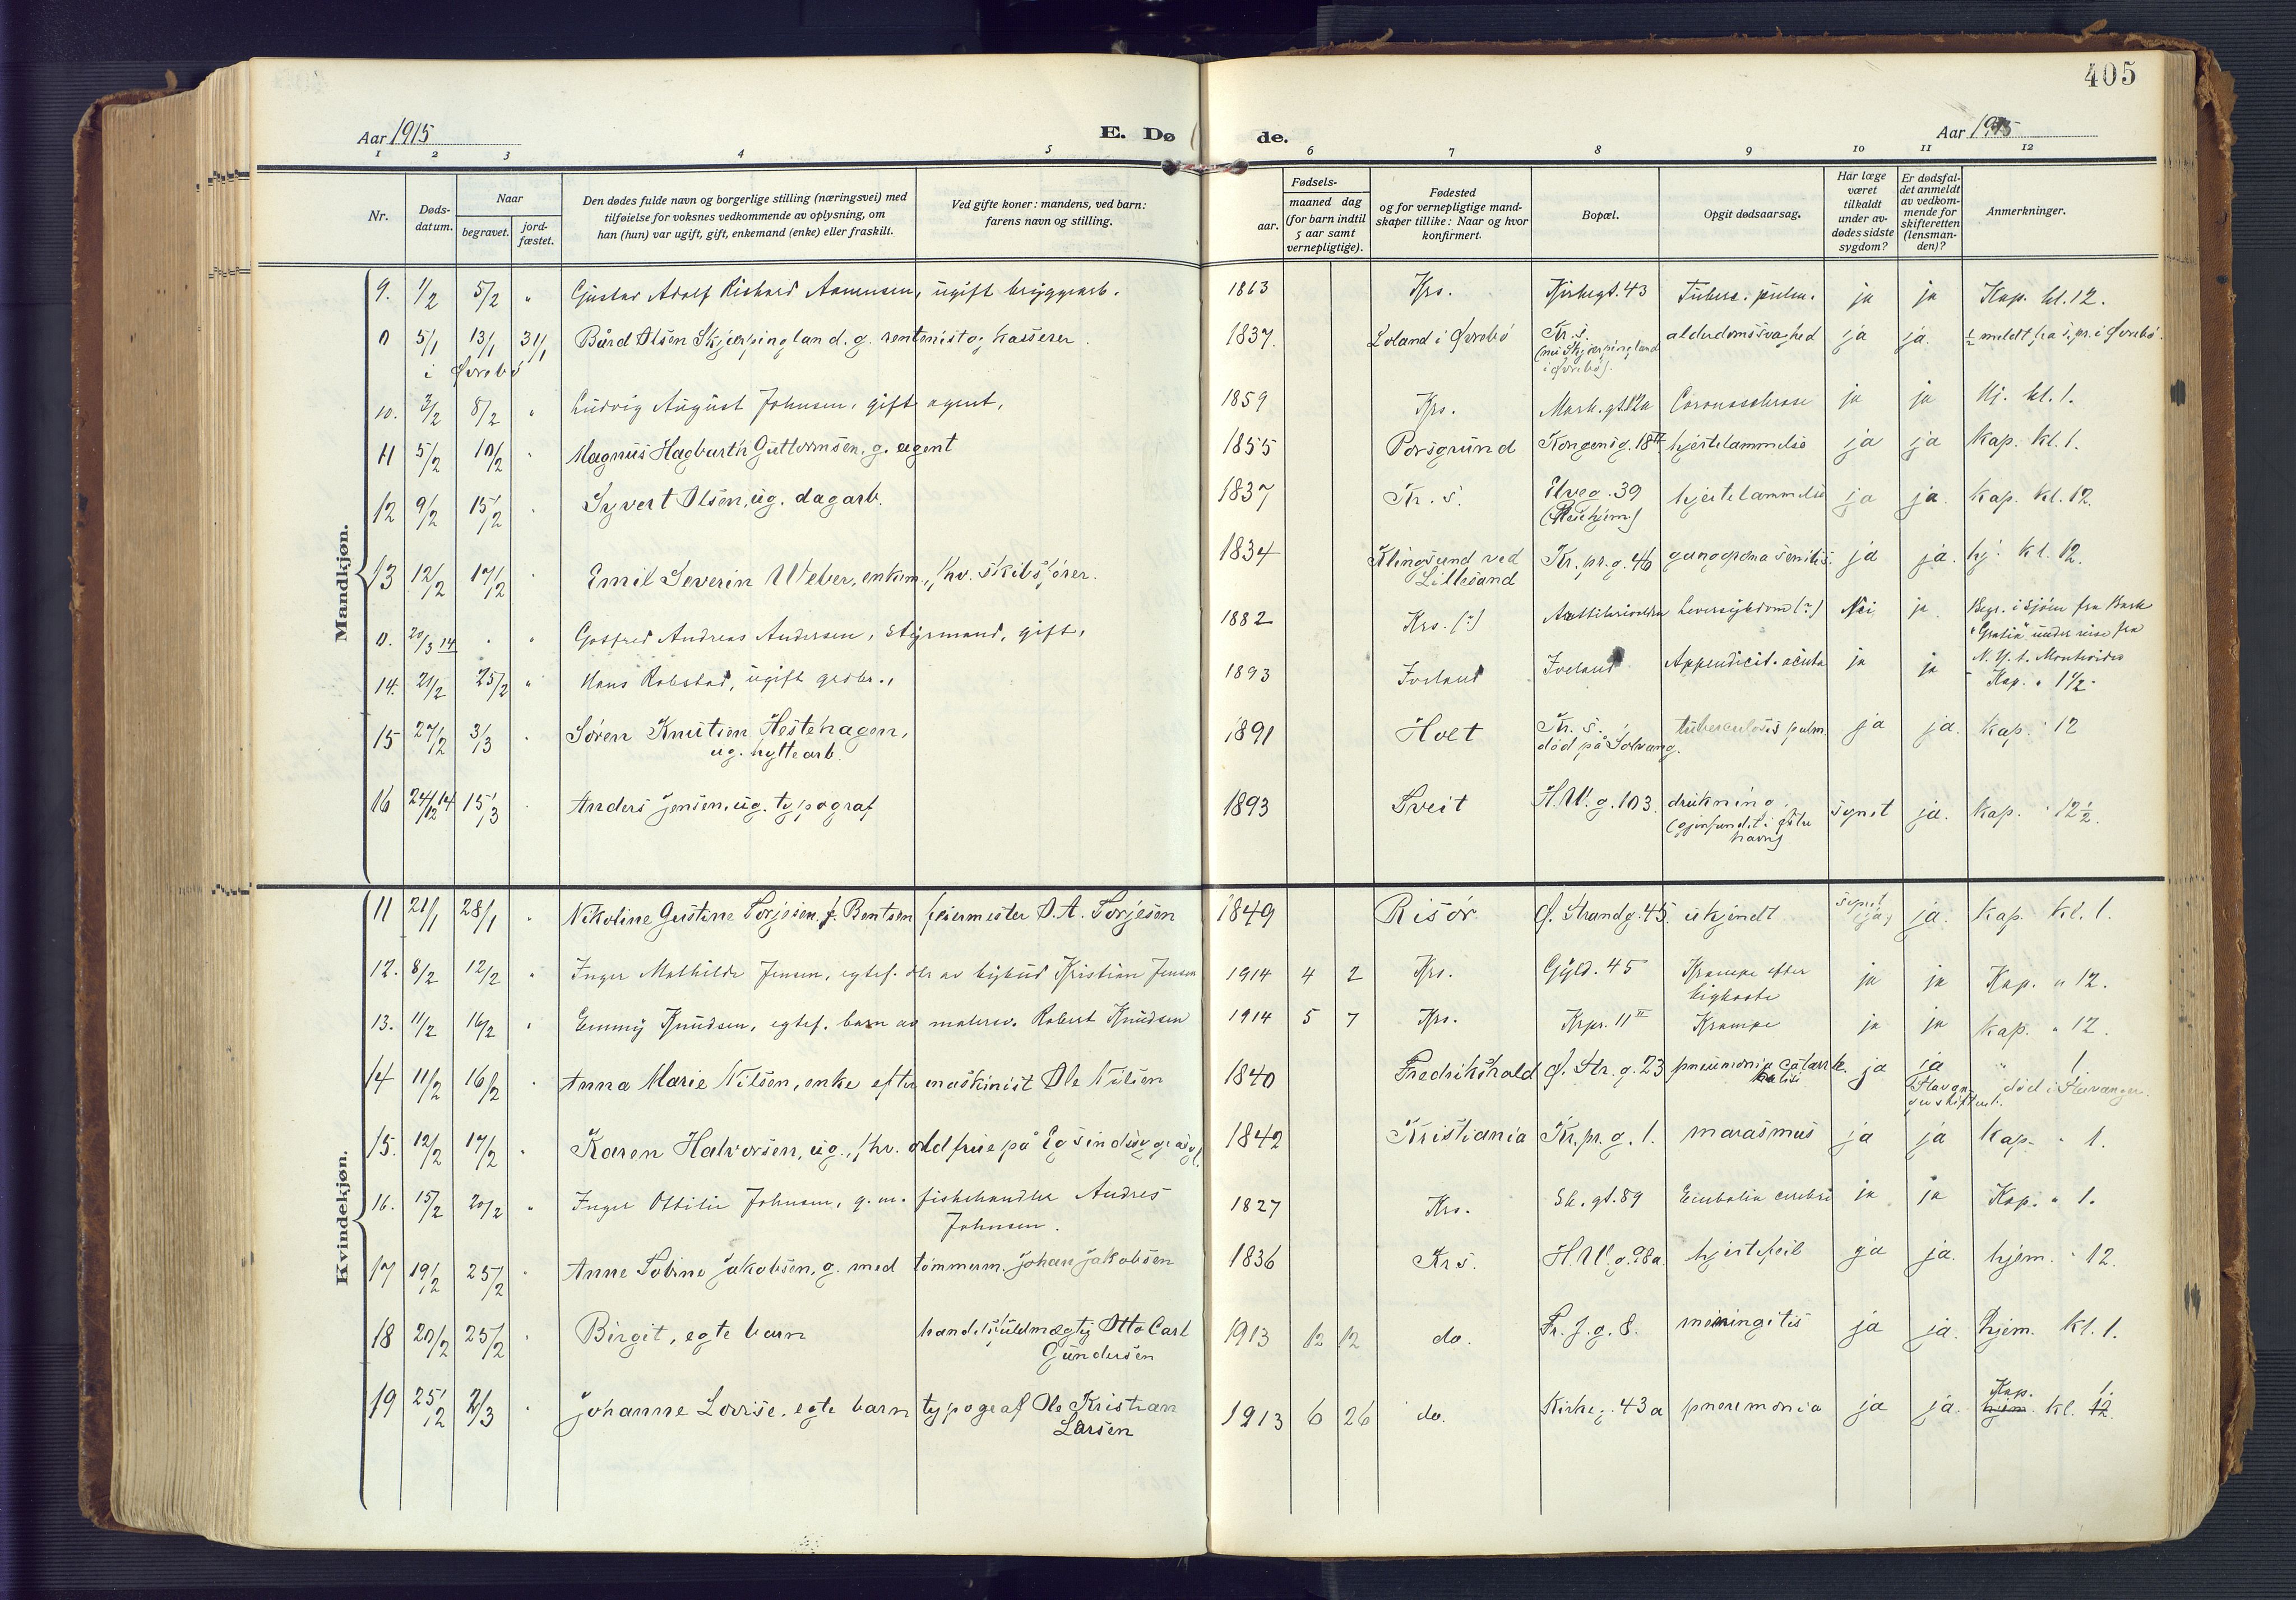 405
Aar 1915 E. Døde. Aar 1915
1 2 3 4 5 6 7 8 9 10 11 12
Nr. Døds-datum. Naar begravet. jord-fæstet. Den dødes fulde navn og borgerlige stilling (næringsvei) med tilføielse for voksnes vedkommende av oplysning, om han (hun) var ugift, gift, enkemand (enke) eller fraskilt. Ved gifte koner: mandens, ved barn: farens navn og stilling. Fødsels- aar. maaned dag (for barn indtil 5 aar samt vernepligtige). Fødested og for vernepligtige mand-skaper tillike: Naar og hvor konfirmert. Bopæl. Opgit dødsaarsag. Har læge været tilkaldt under av-dødes sidste sygdom? Er dødsfal-det anmeldt av vedkom-mende for skifteretten (lensman-den)? Anmerkninger.
Mandkjøn.
9. 1/2 5/2 " Gustav Adolf Richard Aanensen, ugift bryggearb. 1863 Krs. Kirkegt. 43 Tuberc. pulm. ja ja Kap. kl. 12.
0 5/1 13/1 31/1 Bård Olsen Skjerpingland. g. rentenist og kasserer. 1837. Loland i Øvrebø Kr. s. alderdomssvaghed ja ja. 1/2 meldt fra s.pr. i Øvrebø.
i Øvrebø (nu Skjerpingland i Øvrebø).
10. 3/2 8/2 " Ludvig August Johnsen, gift agent, 1859 Krs. Mark.gt. 12a ja ja Hj. kl. 1.
11 5/2 10/2 " Magnus Hagbarth Guttormsen, g. agent 1855 Porsgrund Kongensg. 18 II hjertelammelse ja ja Kap. Kl. 1.
12 9/2 15/2 " Syvert Olsen, ug. dagarb. 1837 Kr. s. Elveg. 39 hjertelammelse ja ja. Kap. Kl. 12.
13 12/2 17/2 " Emil Severin Weber, enkem., fhv. skibsfører. 1834 ved Lillesand Kr. pr. g. 46 senilis. ja ja. hj. kl. 12.
0. 20/3 14 " " Gotfred Andreas Andersen, styrmand, gift, 1882 Krs. (?) Leversygdom (?) Nei ja Begr. i sjøen fra Bark
"Gratia" under reise fra
N. Y. t. Montevideo
14. 21/2 25/2 " Hans Robstad, ugift grdbr., 1893 Iveland Iveland Appendicit. acuta ja ja Kap. " 1 1/2.
15 27/2 3/3 " Søren Knutsen Hestehagen, 1891 Holt Kr. s. tuberculosis pulm ja ja. Kap. " 12
ug. hyttearb. død på Solvang.
16 24/12 14 15/3 " Anders Jensen, ug. typograf 1893 Tveit H.W.g. 103. drukning. synet ja. Kap. " 12 1/2.
(gjenfundet i østre havn)
Kvindekjøn.
11 21/1 28/1 " Nikoline Gustine Torjesen f. Bentsen feiermester O. A. Torjesen 1849 Risør. Ø. Strandg. 45. ukjendt synet ja. Kap. Kl. 1.
12. 8/2 12/2 " Inger Mathilde Jensen, egtef. dtr av bybud Kristian Jensen 1914 4 2 Krs. Gyld. 45 Krampe efter kighoste ja ja Kap. " 12.
13. 11/2 16/2 " Emmy Knudsen, egtef. barn av matersv. Robert Knudsen 1914 5 7 Krs. Krpr. 11 II Krampe ja ja Kap. " 12.
14 11/2 16/2 " Anna Marie Nilsen, enke efter maskinist Ole Nilsen 1840 Fredrikshald Ø. Str. g. 23 pneumonia catarrhalis ja ja " 1
død i Stavanger.
15. 12/2 17/2 " Karen Halvorsen, ug., fhv. oldfrue på Eg sindssygeasyl. 1842 Kristiania Kr. pr. g. 1. marasmus ja ja Kap. " 1.
16. 15/2 20/2 " Inger Ottilie Johnsen, g. m. fiskehandler Andres Johnsen. 1827 Krs. Sk. gt. 89 Embolia cerebri ja ja Kap. " 1.
17 19/2 25/2 " Anne Tobine Jakobsen, g. med tømmerm. Johan Jakobsen 1836 Krs. H.W.g. 98a. hjertefeil ja ja. hjem. " 12.
18 20/2 25/2 " Birgit, egte barn handelsfuldmægtig Otto Carl Gundersen 1913 12 12 do. Fr. J. g. 8. meningitis ja ja. hjem. Kl. 1.
19 25/2 2/3 " Johanne Lovise, egte barn typograf Ole Kristian Larsen 1913 6 26 do. Kirkeg. 43a pneumonia ja ja. Kap. hjem kl. 1. 12.